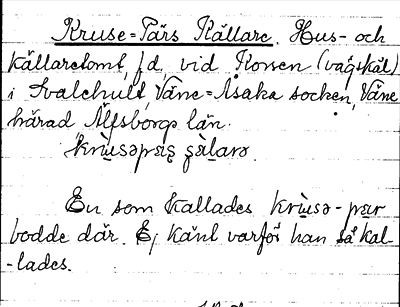 Kruse=Pärs Källare. Hus- och
källaretomt, f d, vid Korsen (vägskäl)
i Svalehult, Väne=Åsaka socken, Väne
härad Älfsborgs län.
krùsəpæs çæ̀larə.
En som kallades krùsə-pær
bodde där. Ej känt varför han så kal-
-lades.